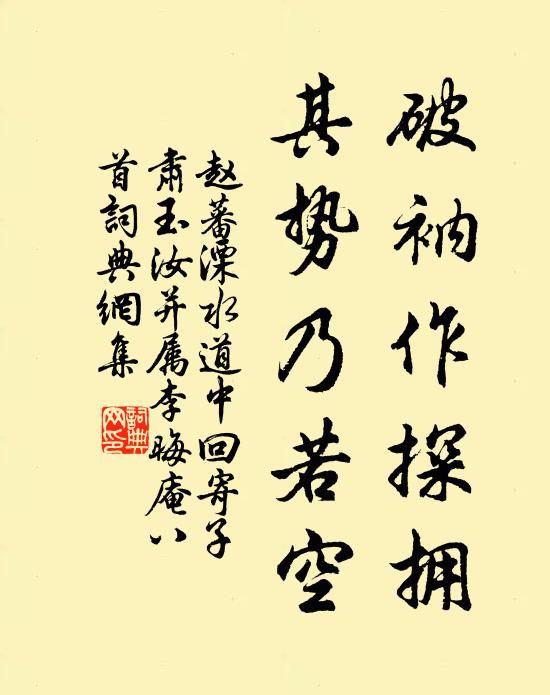 破衲作探拥
其势乃若空
赵蕃溧水道中回寄子
肃玉汝并属李晦庵八
首詞典網集
詞典网印